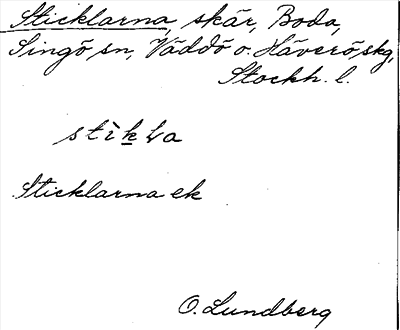 Sticklarna, skär, Boda,
Singö sn, Väddö o. Häverö skg,
Stockh. l.
Sticklarna ek
O. Lundberg